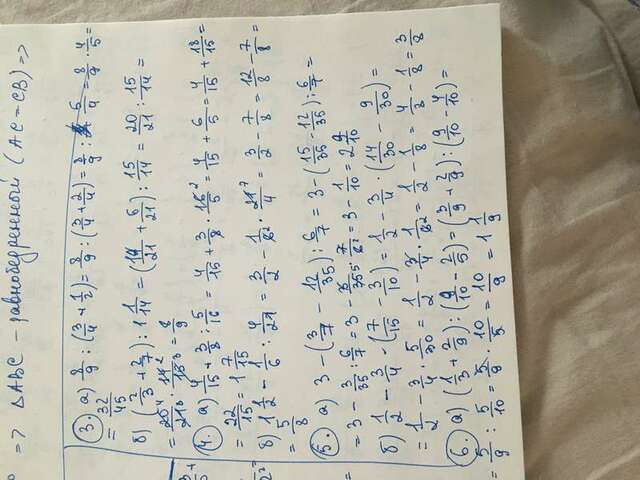 => △ABC – равнобедренный (AC = CB) =>
3. а) 8/9 : (3/4 + 1/2) = 8/9 : (3/4 + 2/4) = 8/9 : 5/4 = 8/9 · 4/5 =
= 32/45
б) (2/3 + 2/7) : 1 1/14 = (14/21 + 6/21) : 15/14 = 20/21 : 15/14 =
= 20⁴/21₃ · 14²/15₃ = 8/9
4. а) 4/15 + 3/8 : 5/16 = 4/15 + 3/8 · 16²/5 = 4/15 + 6/5 = 4/15 + 18/15 =
= 22/15 = 1 7/15
б) 1 1/2 – 1/6 : 4/21 = 3/2 – 1/6₂ · 21⁷/4 = 3/2 – 7/8 = 12/8 – 7/8 =
= 5/8
5. а) 3 – (3/7 – 12/35) : 6/7 = 3 – (15/35 – 12/35) : 6/7 =
= 3 – 3/35 : 6/7 = 3 – 3/35₅ · 7/6₂ = 3 – 1/10 = 2 9/10
б) 1/2 – 3/4 · (7/15 – 3/10) = 1/2 – 3/4 · (14/30 – 9/30) =
= 1/2 – 3/4 · 5/30 = 1/2 – 3/4 · 1/6₂ = 1/2 – 1/8 = 4/8 – 1/8 = 3/8
6. а) (1/3 + 2/9) : (9/10 – 2/5) = (3/9 + 2/9) : (9/10 – 4/10) =
= 5/9 : 5/10 = 5/9 · 10/5 = 10/9 = 1 1/9